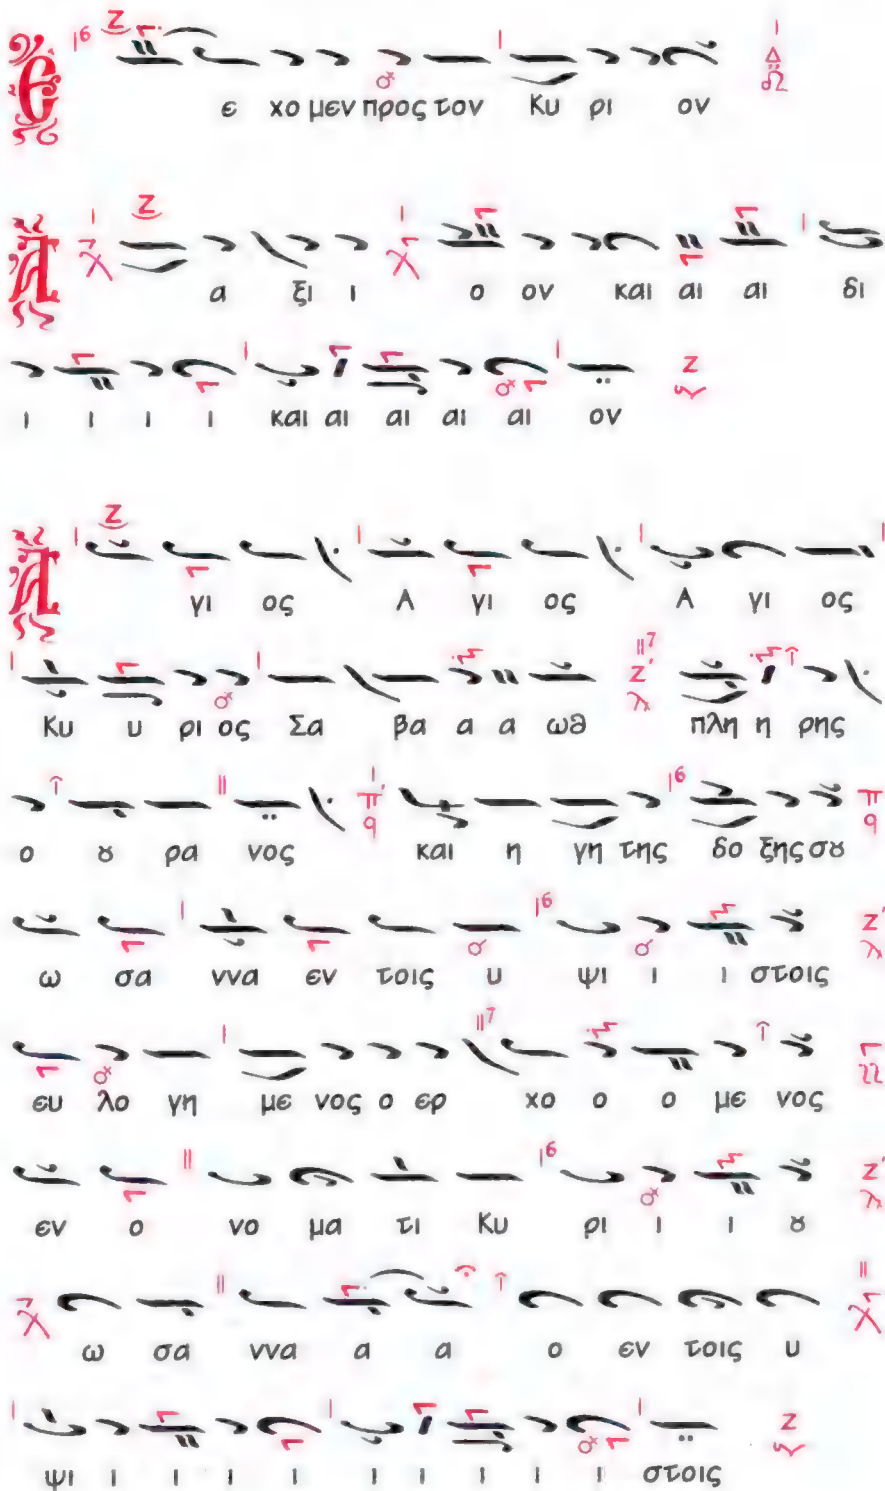 Ε ε χο μεν προς τον Κυ ρι ον
Α α ξι ι ο ον και αι αι δι
ι ι ι ι και αι αι αι αι ον
Α γι ος Α γι ος Α γι ος
Κυ υ ρι ος Σα βα α α ωθ πλη η ρης
ο ȣ ρα νος και η γη της δο ξης σȣ
ω σα ννα εν τοις υ ψι ι ι στοις
ευ λο γη με νος ο ερ χο ο ο με νος
εν ο νο μα τι Κυ ρι ι ι ȣ
ω σα ννα α α ο εν τοις υ
ψι ι ι ι ι ι ι ι ι ι στοις